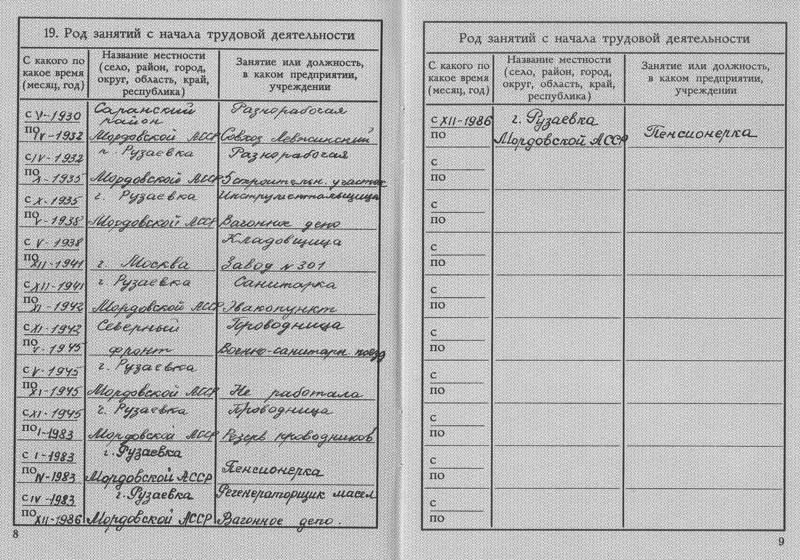 19. Род занятий с начала трудовой деятельности
С какого по какое время (месяц, год)
Название местности (село, район, город, округ, область, край, республика)
Занятие или должность, в каком предприятии, учреждении
с V-1930 Саранский район Разнорабочая
по IV-1932 Мордовской АССР Совхоз Левжинский
с IV-1932 г. Рузаевка Разнорабочая
по X-1935 Мордовской АССР 5 строительн. участок
с X-1935 г. Рузаевка Инструментальщица
по V-1938 Мордовской АССР Вагонное депо
с V-1938 Кладовщица
по XII-1941 г. Москва Завод N 301
с XII-1941 г. Рузаевка Санитарка
по XI-1942 Мордовской АССР Эвакопункт
с XI-1942 Северный Проводница
по V-1945 фронт Военно-санитарн. поезд
с V-1945 г. Рузаевка
по XI-1945 Мордовской АССР Не работала
с XI-1945 г. Рузаевка Проводница
по I-1983 Мордовской АССР Резерв проводников
с I-1983 г. Рузаевка
по IV-1983 Мордовской АССР Пенсионерка
с IV-1983 г. Рузаевка Регенераторщик масел
по XII-1986 Мордовской АССР Вагонное депо.
8
Род занятий с начала трудовой деятельности
С какого по какое время (месяц, год)
Название местности (село, район, город, округ, область, край, республика)
Занятие или должность, в каком предприятии, учреждении
с XII-1986 г. Рузаевка
по Мордовской АССР Пенсионерка
с
по
с
по
с
по
с
по
с
по
с
по
с
по
с
по
с
по
9